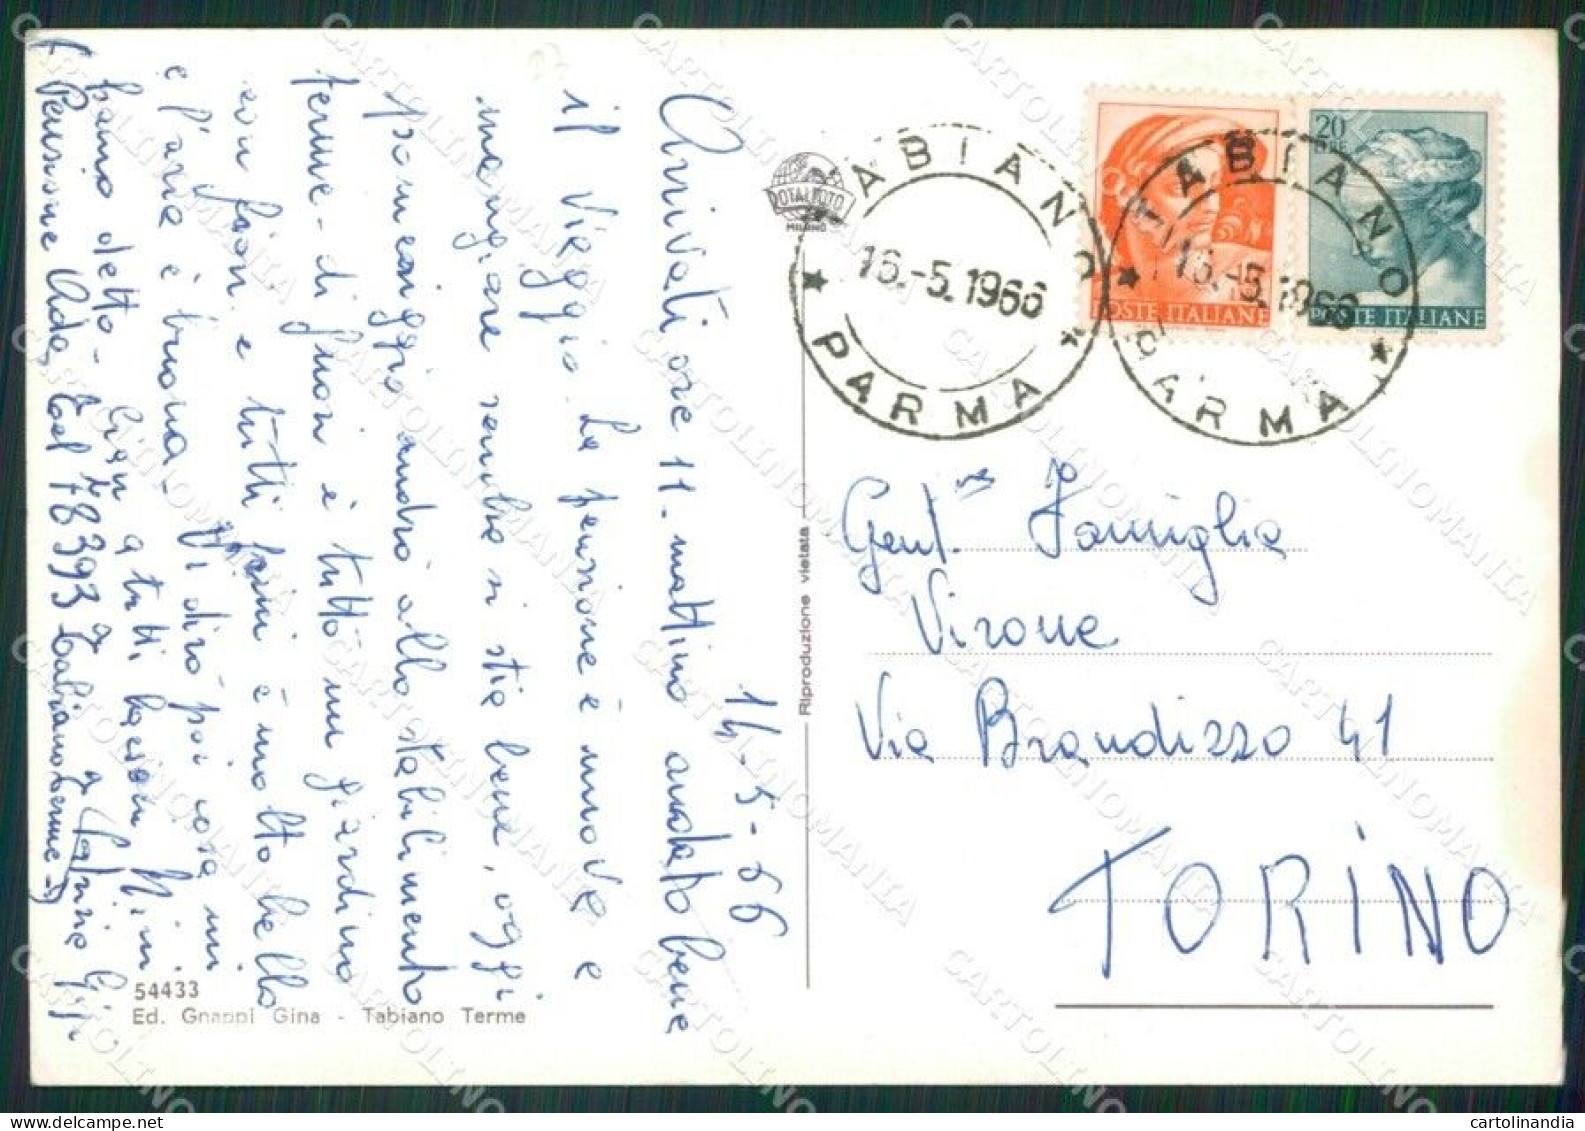 14-5-66
Arrivati ore 11. mattino andato bene
il viaggio. La pensione è nuova e
mangiare sembra si stia bene, oggi
pomeriggio andrò allo stabilimento
terme - di fuori è tutto un giardino
con fiori e tutti fini è molto bello
e l'aria è buona - Vi dirò poi cosa mi
hanno detto - Ciao a tutti bacioni Mimi
Pensione Ada, Tel 78393 Tabiano terme
54433
Ed. Gnappi Gina - Tabiano Terme
Riproduzione vietata
ROTALFOTO
MILANO
TABIANO
16.-5.1966
PARMA
TABIANO
16.-5.1966
PARMA
POSTE ITALIANE
20
LIRE
POSTE ITALIANE
Gent.ma Famiglia
Virone
Via Brandizzo 41
TORINO
CARTOLINOMANIA
cartolinandia